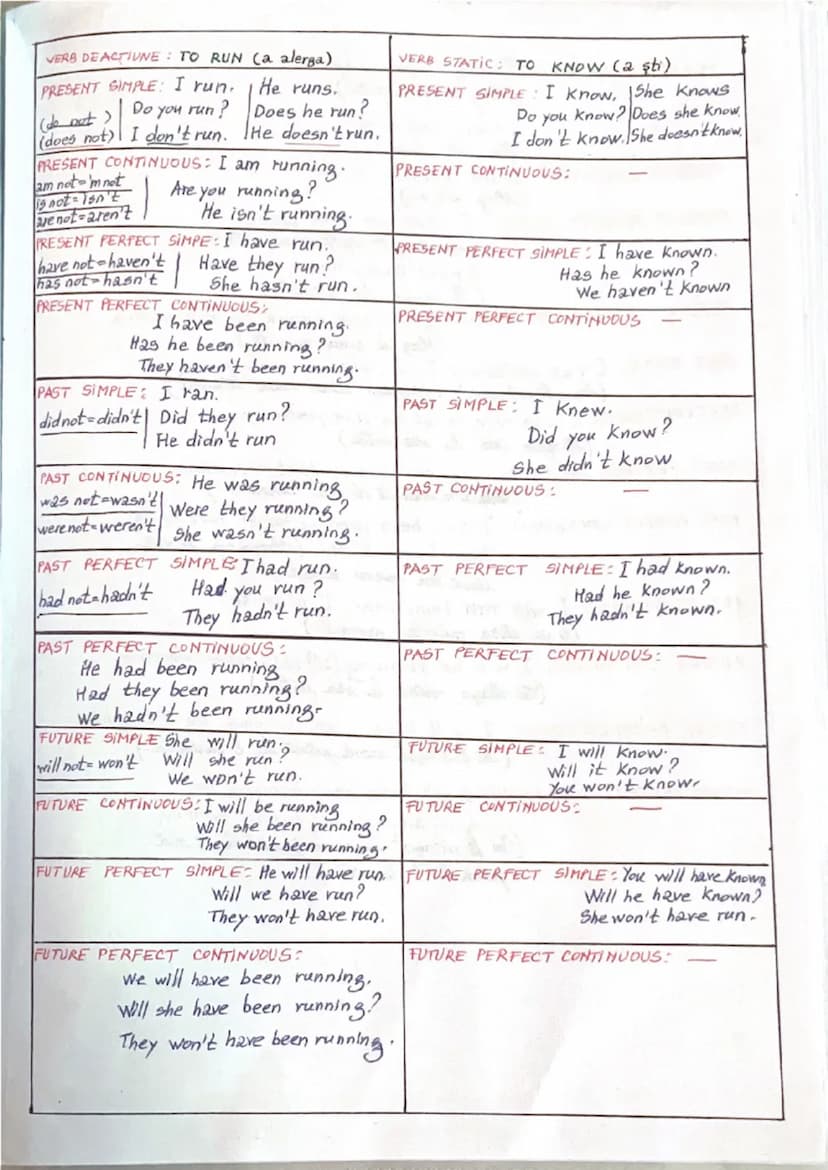 VERB DE ACȚIUNE : TO RUN (a alerga)
VERB STATIC : TO KNOW (a ști)
PRESENT SIMPLE: I run. He runs.
(do not) Do you run? Does he run?
(does not) I don't run. He doesn't run.
PRESENT SIMPLE : I know. She knows
Do you know? Does she know.
I don't know. She doesn't know.
PRESENT CONTINUOUS: I am running.
am not='m not
is not=isn't Are you running?
are not=aren't He isn't running.
PRESENT CONTINUOUS: —
PRESENT PERFECT SIMPE: I have run.
have not=haven't Have they run?
has not=hasn't She hasn't run.
PRESENT PERFECT SIMPLE : I have known.
Has he known?
We haven't known
PRESENT PERFECT CONTINUOUS:
I have been running.
Has he been running?
They haven't been running.
PRESENT PERFECT CONTINUOUS —
PAST SIMPLE: I ran.
did not=didn't Did they run?
He didn't run
PAST SIMPLE: I knew.
Did you know?
She didn't know
PAST CONTINUOUS: He was running
was not=wasn't Were they running?
were not=weren't She wasn't running.
PAST CONTINUOUS : —
PAST PERFECT SIMPLE: I had run.
had not=hadn't Had you run?
They hadn't run.
PAST PERFECT SIMPLE: I had known.
Had he known?
They hadn't known.
PAST PERFECT CONTINUOUS :
He had been running
Had they been running?
We hadn't been running.
PAST PERFECT CONTINUOUS: —
FUTURE SIMPLE She will run.
will not=won't Will she run?
We won't run.
FUTURE SIMPLE: I will know.
Will it know?
You won't know.
FUTURE CONTINUOUS: I will be running
Will she been running?
They won't been running.
FUTURE CONTINUOUS: —
FUTURE PERFECT SIMPLE: He will have run.
Will we have run?
They won't have run.
FUTURE PERFECT SIMPLE: You will have known
Will he have known?
She won't have run.
FUTURE PERFECT CONTINUOUS:
We will have been running.
Will she have been running?
They won't have been running.
FUTURE PERFECT CONTINUOUS: —